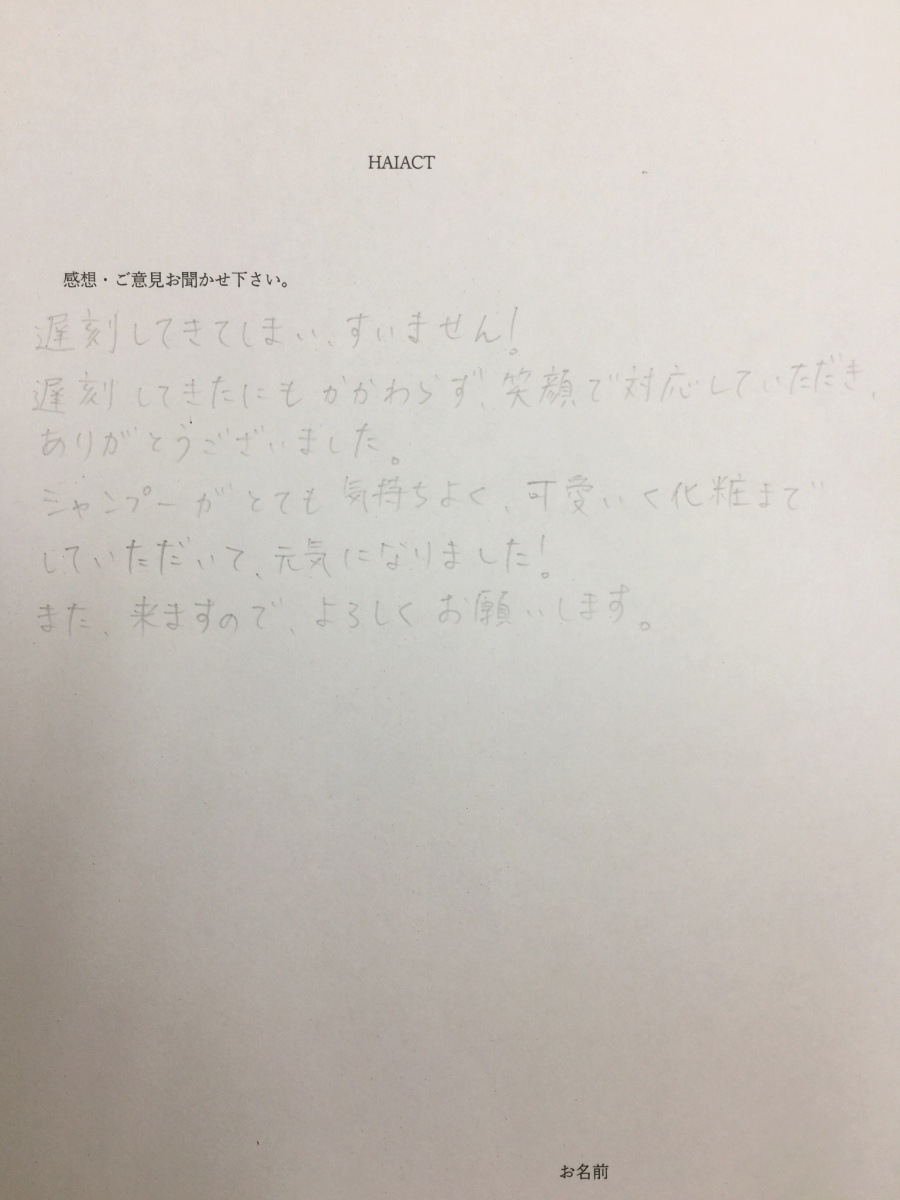 HAIACT
感想・ご意見お聞かせ下さい。
遅刻してきてしまい、すいません!
遅刻してきたにもかかわらず、笑顔で対応していただき、
ありがとうございました。
シャンプーがとても気持ちよく、可愛いく化粧まで
していただいて、元気になりました!
また、来ますので、よろしくお願いします。
お名前